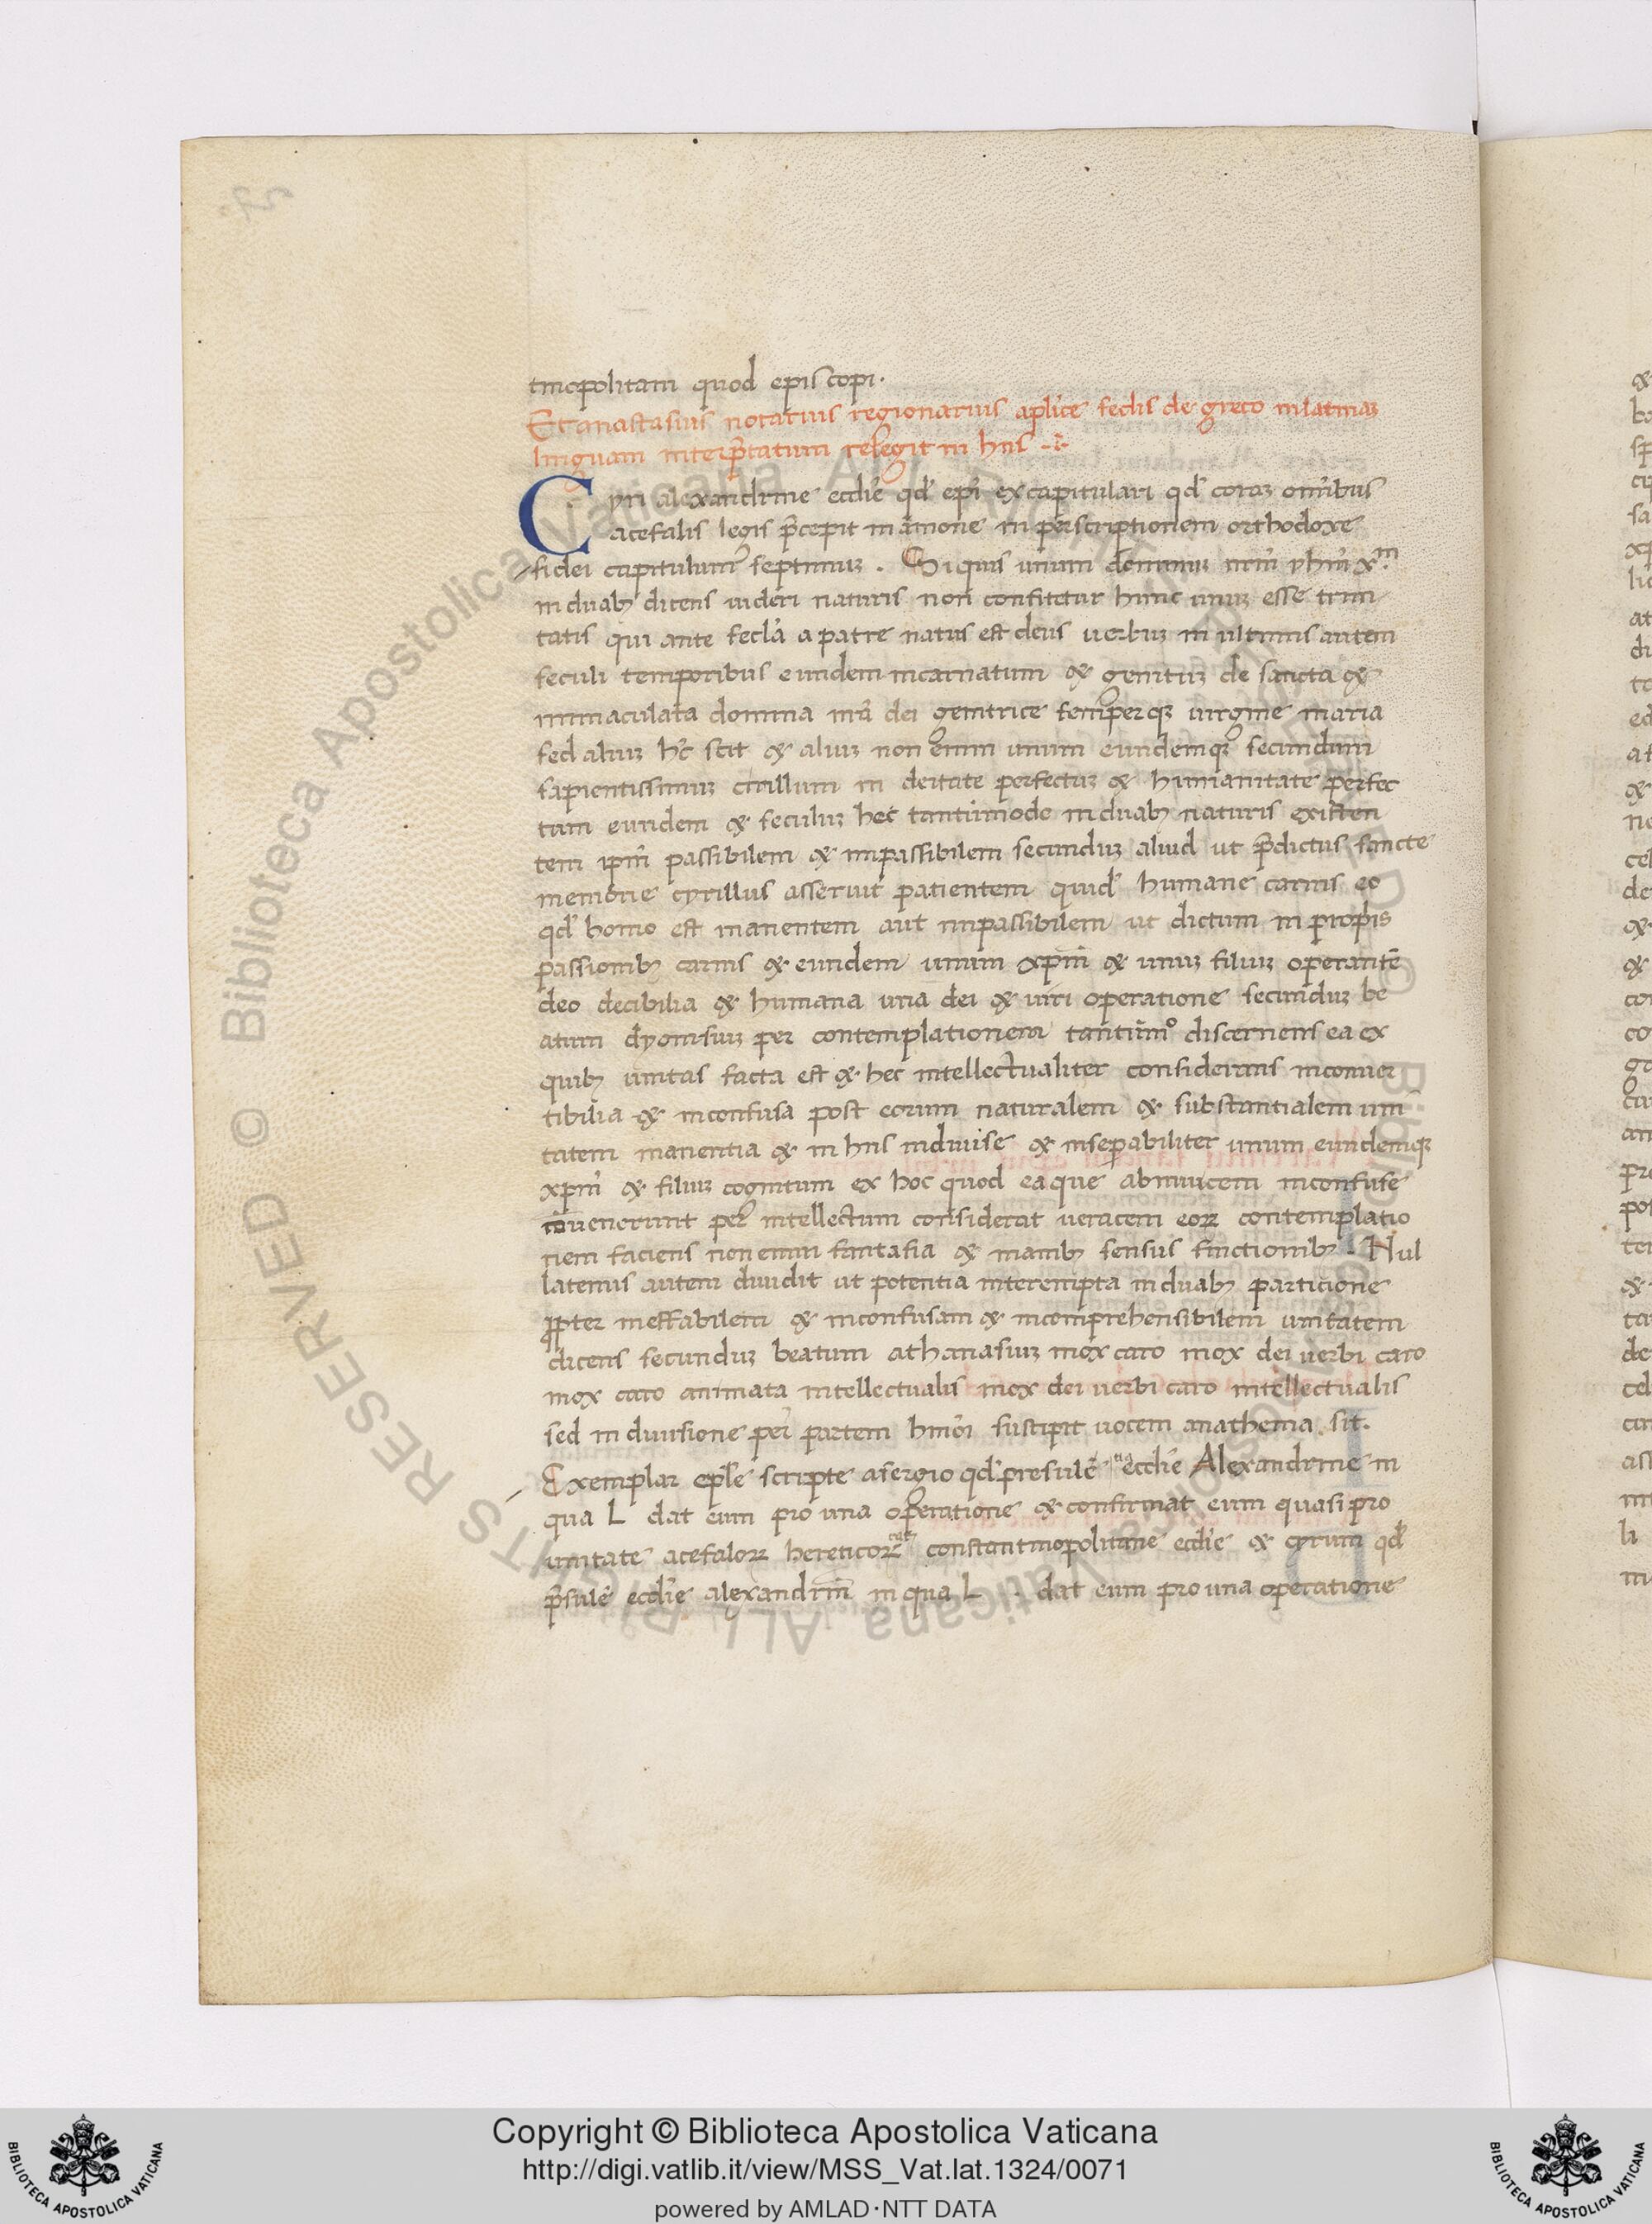 tinopolitam quod episcopi.
Et anastasius notarius regionarius aplice sedis de greco in latinaʒ
linguam interp̄tatum relegit in hiis
Cyri alexandrine eccl̄ie qd̄ ep̄i ex capitulari qd̄ coraʒ om̄ibus
acefalis legis p̄cepit in āmone in perscriptionem orthodoxe
fidei capitulum septimuʒ . Si quis unum dominuʒ nr̄m yhm̄ xm̄
in duabʒ dicens uideri naturis non confitetur hunc unuʒ esse trini
tatis qui ante secl̄a a patre natus est deus uerbuʒ in ultimis autem
seculi temporibus eundem incarnatum & genituʒ de sancta &
immaculata domina nr̄a dei genitrice semperqʒ uirgine maria
sed aliuʒ hc̄ scit & aliuʒ non enim unum eundemqʒ secundum
sapientissimuʒ cirillum in deitate perfectuʒ & humanitate perfec
tum eundem & seculuʒ hec tantūmodo in duabʒ naturis existen
tem ipm̄ passibilem & impassibilem secunduʒ aliud ut p̄dictus sancte
memorie cyrillus asseruit patientem quid̄ humane carnis eo
qd̄ homo est manentem aut impassibilem ut dictum in propīs
passionibʒ carnis & eundem unum xpm̄ & unuʒ filiuʒ operantē
deo decibilia & humana una dei & uiri operatione secunduʒ be
atum dyonisiuʒ per contemplationem tantūmo discernens ea ex
quibʒ unitas facta est & hec intellectualiter considerans inconuer
tibilia & inconfusa post eorum naturalem & substantialem uni
tatem manentia & in hiis indiuise & inseparabiliter unum eundemqʒ
xpm̄ & filiuʒ cognitum ex hoc quod ea que abinuicem inconfuse
conuenerunt per intellectum considerat ueracem eorꝝ contemplatio
nem faciens non enim fantasia & manibʒ sensus finctionibʒ . Nul
latenus autem diuidit ut potentia interempta in duabʒ particione
ꝓpter ineffabilem & inconfusam & incomprehensibilem unitatem
dicens secunduʒ beatum athanasiuʒ mox caro mox dei uerbi caro
mox caro animata intellectualis mox dei uerbi caro intellectualis
sed in diuisione per partem hm̄oi suscipit uocem anathema sit.
Exemplar ep̄le scripte a sergio qd̄ presulē eccl̄ie Alexandrine in
qua L dat eum pro una operatione & confirmat eum quasi pro
unitate acefalorꝝ hereticorꝝ constantinopolitane eccl̄ie & cyrum qd̄
p̄sulē eccl̄ie alexandrin̄ in qua L . dat eum pro una operatione
Copyright © Biblioteca Apostolica Vaticana
http://digi.vatlib.it/view/MSS_Vat.lat.1324/0071
powered by AMLAD·NTT DATA
BIBLIOTECA APOSTOLICA VATICANA
BIBLIOTECA APOSTOLICA VATICANA